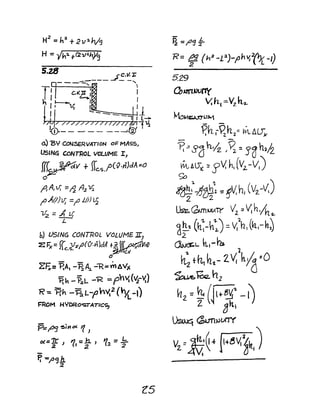 H² = h² + 2v²h/g
H = √h² + 2v²h/g
5.28
C.V. I
C.V. II
h
V₁
L
V₂
① ②
a) BY CONSERVATION OF MASS,
USING CONTROL VOLUME I,
ρ₁A₁V₁ = ρ₂A₂V₂
ρA(h)V₁ = ρ(L)V₂
V₂ = h V₁/L
b) USING CONTROL VOLUME II,
ΣFx = P̄₁A₁ - P̄₂A₂ - R = ṁΔVx
P̄₁h - P̄₂L - R = ρhV₁(V₂-V₁)
R = P̄₁h - P̄₂L - ρhV₁²(h/L - 1)
FROM HYDROSTATICS,
P̄ = ρg sin α η,
α = π/2, η₁ = h/2, η₂ = L/2
P̄₁ = ρg h/2
P̄₂ = ρg L/2
R = ρg/2 (h² - L²) - ρhV₁²(h/L - 1)
5.29
CONTINUITY
V₁h₁ = V₂h₂
MOMENTUM
P̄₁h₁ - P̄₂h₂ = ṁΔVx
P̄₁ = ρgh₁/2, P̄₂ = ρgh₂/2
ṁΔVx = ρV₁h₁(V₂-V₁)
SO
ρgh₁²/2 - ρgh₂²/2 = ρV₁h₁(V₂-V₁)
USE CONTINUITY V₂ = V₁h₁/h₂
gh₂/2 (h₁²-h₂²) = V₁²h₁(h₁-h₂)
CANCEL h₁-h₂
h₂² + h₁h₂ - 2V₁²h₁/g = 0
SOLVE FOR h₂
h₂ = h₁/2 (√1+8V₁²/gh₁ - 1)
USING CONTINUITY
V₂ = gh₁/4V₁ (1 + √1+8V₁²/gh₁)
25